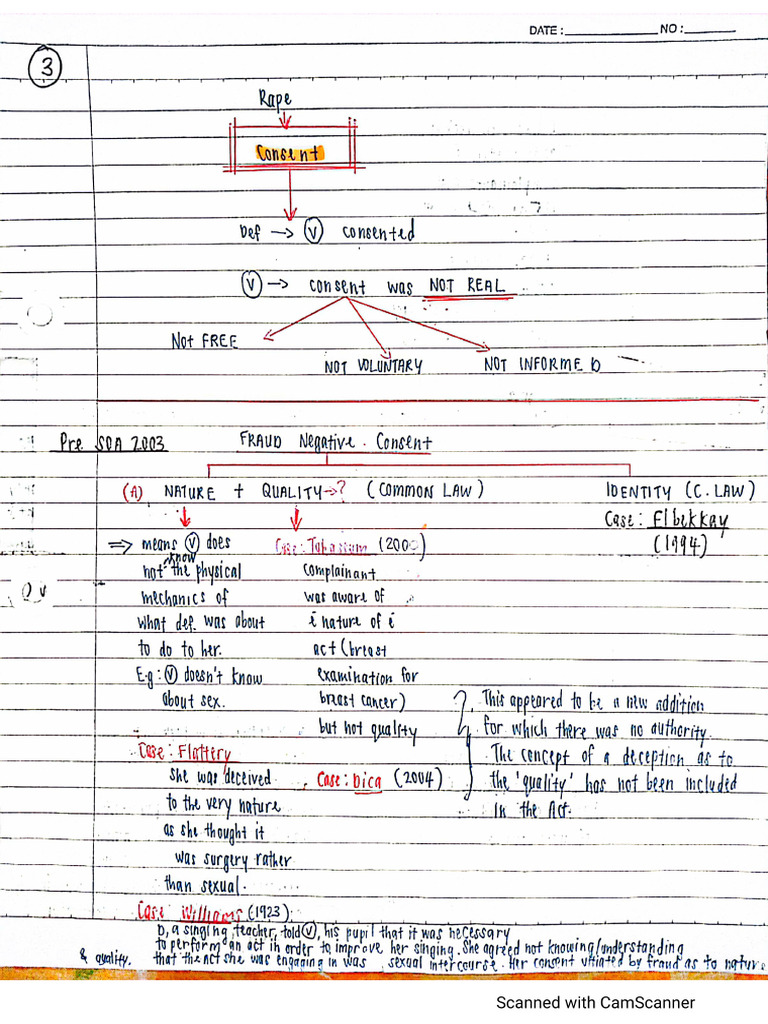 DATE : NO :
3
Rape
Consent
Def → V consented
V → consent was NOT REAL
Not FREE
NOT VOLUNTARY
NOT INFORMED
Pre SOA 2003
FRAUD Negative Consent
(A) NATURE + QUALITY → ? (COMMON LAW)
⇒ means V does
not know the physical
mechanics of
what def. was about
to do to her.
E.g: V doesn't know
about sex.
Case: Flattery
she was deceived
to the very nature
as she thought it
was surgery rather
than sexual.
Case: Williams (1923):
D, a singing teacher, told V, his pupil that it was necessary
to perform an act in order to improve her singing. She agreed not knowing/understanding
that the act she was engaging in was sexual intercourse. Her consent vitiated by fraud as to nature
& quality.
Case: Tabassum (2000)
complainant
was aware of
i nature of i
act (breast
examination for
breast cancer)
but not quality
Case: Dica (2004)
This appeared to be a new addition
for which there was no authority.
The concept of a deception as to
the 'quality' has not been included
in the Act.
IDENTITY (C. LAW)
Case: Elbekkay
(1994)
Scanned with CamScanner